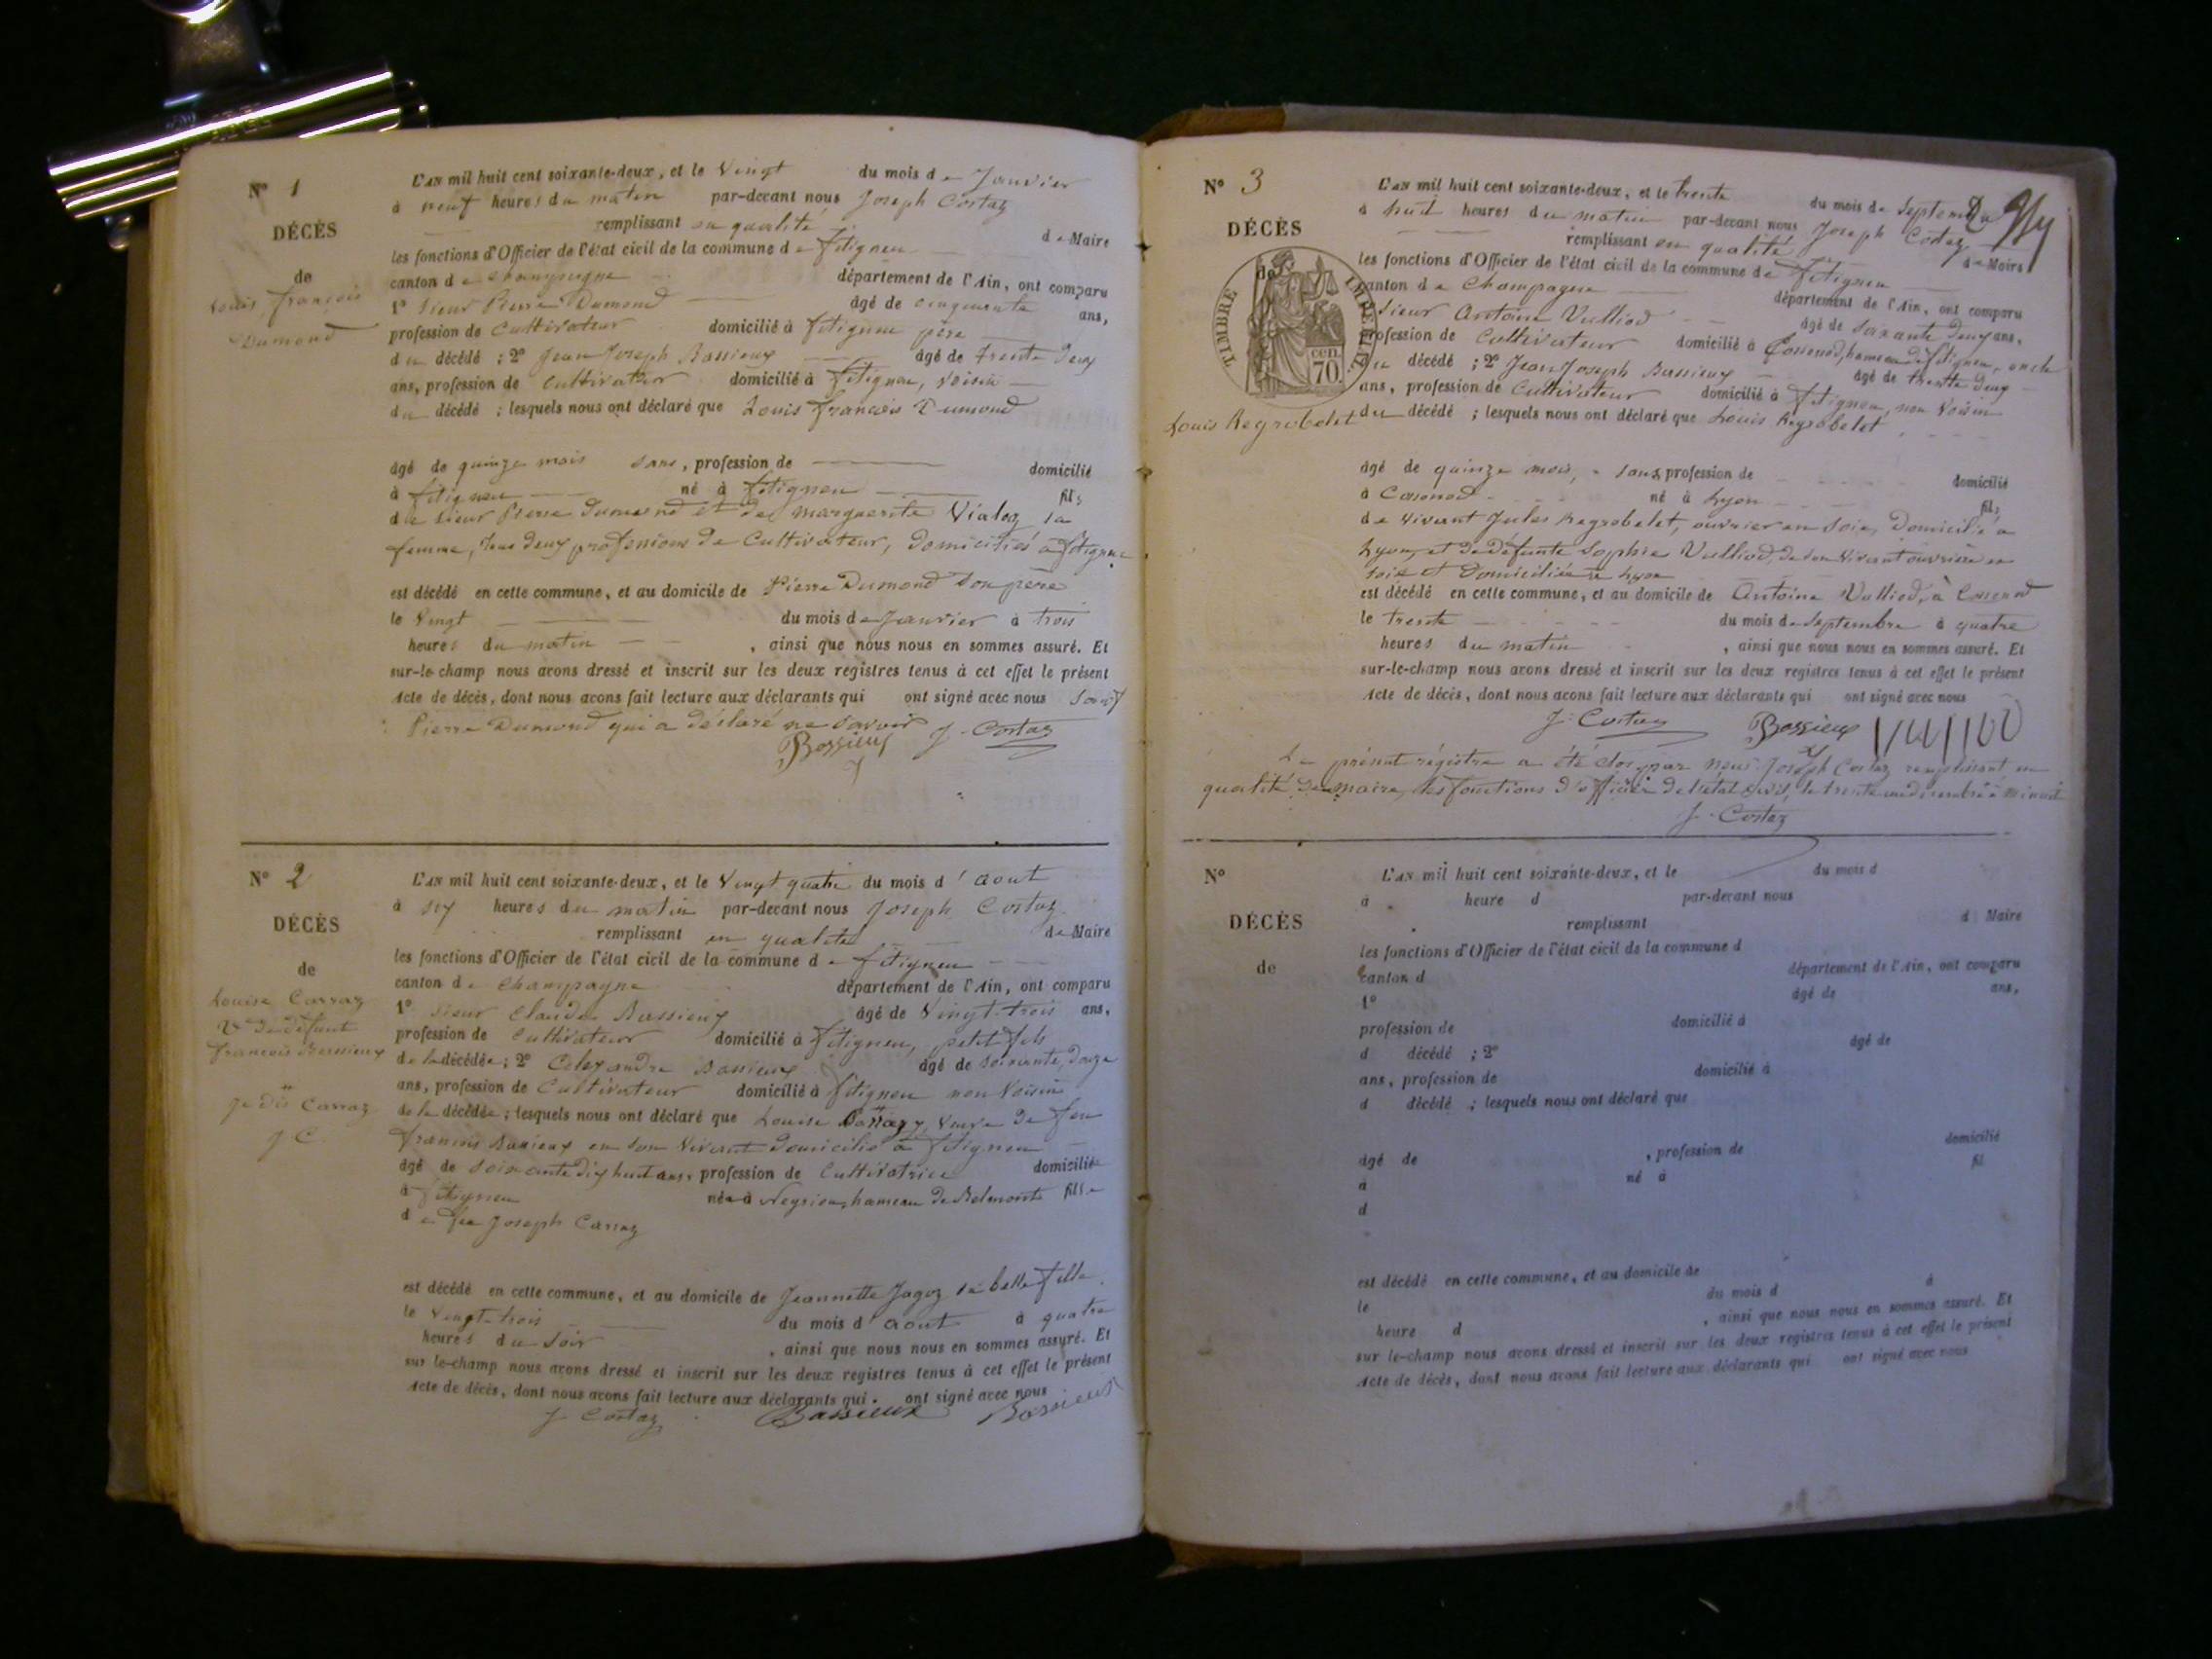 N° 1
DÉCÈS
de
Louis françois
Dumond
L'AN mil huit cent soixante-deux, et le Vingt du mois de Janvier
à neuf heures du matin par-devant nous Joseph Costaz
remplissant en qualité de Maire
les fonctions d'Officier de l'état civil de la commune de fitigneu
canton de champagne département de l'Ain, ont comparu
1° sieur Pierre Dumond âgé de cinquante ans,
profession de Cultivateur domicilié à fitigneu père
du décédé ; 2° Jean Joseph Bassieux âgé de trente deux
ans, profession de cultivateur domicilié à fitigneu, voisin
du décédé ; lesquels nous ont déclaré que Louis françois Dumond
âgé de quinze mois sans, profession de domicilié
à fitigneu né à fitigneu fils
du sieur Pierre Dumond et de marguerite Vialoz sa
femme, tous deux professions de Cultivateur, domiciliés à fitigneu
est décédé en cette commune, et au domicile de Pierre Dumond son père
le Vingt du mois de Janvier à trois
heures du matin , ainsi que nous nous en sommes assuré. Et
sur-le-champ nous avons dressé et inscrit sur les deux registres tenus à cet effet le présent
Acte de décès, dont nous avons fait lecture aux déclarants qui ont signé avec nous sauf
Pierre Dumond qui a déclaré ne savoir
Bassieux J. Costaz
N° 2
DÉCÈS
de
Louise Carraz
Ve de défunt
françois Bassieux
je dis Carraz
J C.
L'AN mil huit cent soixante-deux, et le Vingt quatre du mois d'aout
à six heures du matin par-devant nous Joseph Costaz
remplissant en qualité de Maire
les fonctions d'Officier de l'état civil de la commune de fitigneu
canton de Champagne département de l'Ain, ont comparu
1° sieur Claude Bassieux âgé de Vingt-trois ans,
profession de Cultivateur domicilié à fitigneu, petit fils
de la décédée ; 2° Alexandre Bassieux âgé de soixante douze
ans, profession de Cultivateur domicilié à fitigneu non Voisin
de la décédée ; lesquels nous ont déclaré que Louise Carraz, Veuve de feu
françois Bassieux en son Vivant domicilié à fitigneu
âgé de soixante dix huit ans, profession de Cultivatrice domiciliée
à fitigneu née à Neyrieu, hameau de Belmont fille
de feu Joseph Carraz
est décédé en cette commune, et au domicile de Jeannette Jagoz sa belle fille
le Vingt-trois du mois d'aout à quatre
heures du soir , ainsi que nous nous en sommes assuré. Et
sur le-champ nous avons dressé et inscrit sur les deux registres tenus à cet effet le présent
Acte de décès, dont nous avons fait lecture aux déclarants qui ont signé avec nous
J. Costaz Bassieux Bassieux
N° 3
DÉCÈS
de
TIMBRE IMPÉRIAL
70 cen.
Louis Regrobelet
L'AN mil huit cent soixante-deux, et le trente du mois de Septembre
à huit heures du matin par-devant nous Joseph Costaz
remplissant en qualité de Maire
les fonctions d'Officier de l'état civil de la commune de fitigneu
canton de Champagne département de l'Ain, ont comparu
Sieur Antoine Vulliod âgé de soixante deux ans,
profession de Cultivateur domicilié à Cossonod, hameau de fitigneu, oncle
du décédé ; 2° Jean Joseph Bassieux âgé de trente deux
ans, profession de Cultivateur domicilié à fitigneu, non Voisin
du décédé ; lesquels nous ont déclaré que Louis Regrobelet
âgé de quinze mois, sans profession de domicilié
à Cossonod né à Lyon fils
de vivant Jules Regrobelet, ouvrier en soie, Domicilié à
Lyon, et de défunte Sophie Vulliod, de son Vivant ouvrière en
soie et Domiciliée à Lyon
est décédé en cette commune, et au domicile de Antoine Vulliod, à Cossonod
le trente du mois de Septembre à quatre
heures du matin , ainsi que nous nous en sommes assuré. Et
sur-le-champ nous avons dressé et inscrit sur les deux registres tenus à cet effet le présent
Acte de décès, dont nous avons fait lecture aux déclarants qui ont signé avec nous
J. Costaz Bassieux
Le présent régistre a été clos par nous Joseph Costaz remplissant en
qualité de maire, les fonctions d'officier de l'état civil, le trente un décembre à minuit
J. Costaz
N°
DÉCÈS
de
L'AN mil huit cent soixante-deux, et le du mois d
à heure d par-devant nous
remplissant d Maire
les fonctions d'Officier de l'état civil de la commune d
canton d département de l'Ain, ont comparu
1° âgé de ans,
profession de domicilié à
d décédé ; 2° âgé de
ans, profession de domicilié à
d décédé ; lesquels nous ont déclaré que
âgé de , profession de domicilié
à né à fil
d
est décédé en cette commune, et au domicile de
le du mois d à
heure d , ainsi que nous nous en sommes assuré. Et
sur le-champ nous avons dressé et inscrit sur les deux registres tenus à cet effet le présent
Acte de décès, dont nous avons fait lecture aux déclarants qui ont signé avec nous